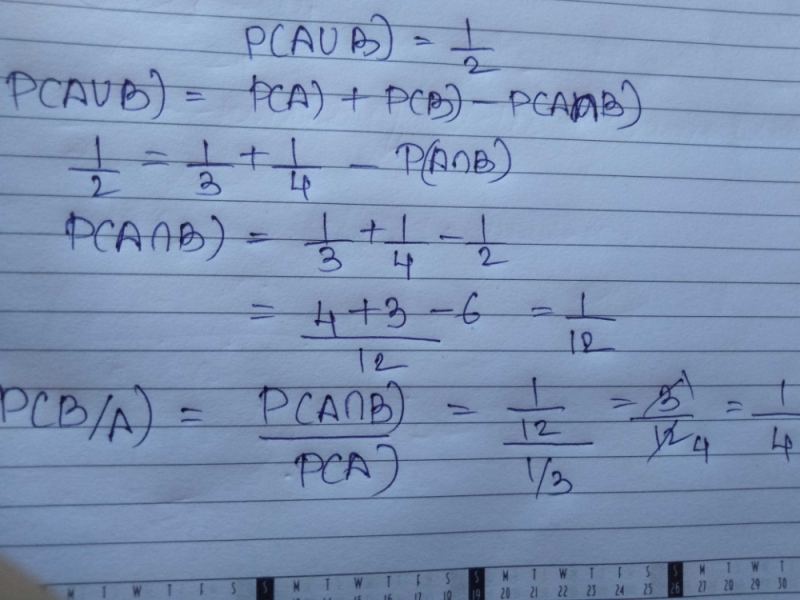 P(A∪B) = 1/2
P(A∪B) = P(A) + P(B) - P(A∩B)
1/2 = 1/3 + 1/4 - P(A∩B)
P(A∩B) = 1/3 + 1/4 - 1/2
= 4+3-6/12 = 1/12
P(B/A) = P(A∩B)/P(A) = 1/12/1/3 = 3 1/12 4 = 1/4
M T W T F S S M T W T F S S M T W T F S S M T W T
19 20 21 22 23 24 25 26 27 28 29 30